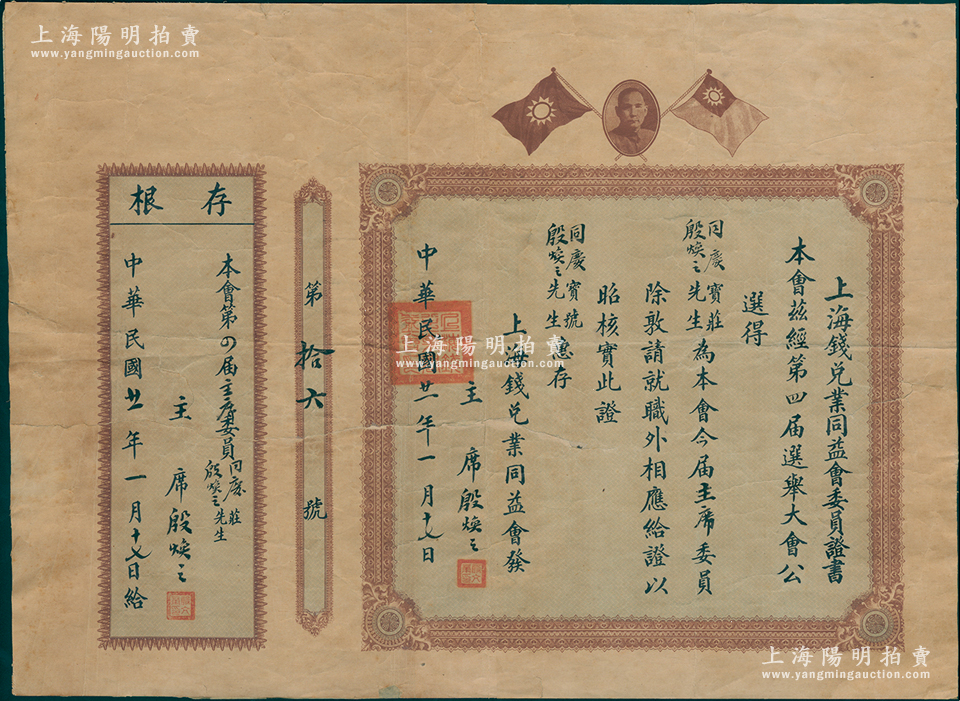 上海陽明拍賣
www.yangmingauction.com
上海錢兌業同益會委員證書
本會茲經第四届選舉大會公
選得
同慶寶莊
殷煥之先生為本會今届主席委員
除敦請就職外相應給證以
昭核實此證
同慶寶號
殷煥之先生惠存
上海錢兌業同益會發
主席殷煥之
中華民國廿一年一月十七日
第拾六號
存根
本會第四届主席委員同慶莊
殷煥之先生
主席殷煥之
中華民國廿一年一月十七日給
上海陽明拍賣
www.yangmingauction.com
上海陽明拍賣
www.yangmingauction.com